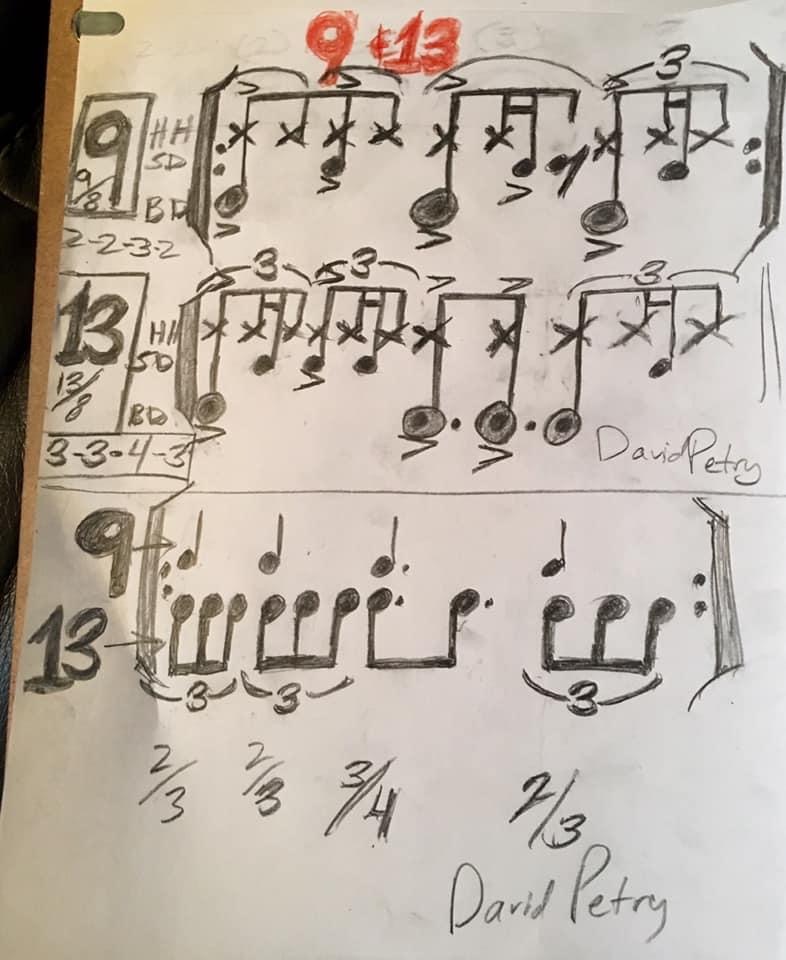 9 & 13
3
9
9/8
HH
SD
BD
2-2-3-2
3 3 3
13
13/8
HH
SD
BD
3-3-4-3
David Petry
9
13
3 3 3
2/3 2/3 3/4 2/3
David Petry